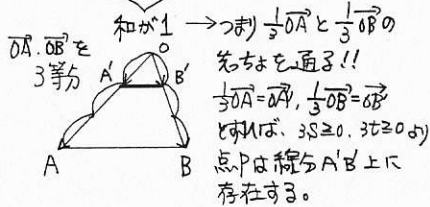 和が1 → つまり 1/3 OA→ と 1/3 OB→ の
先っちょを通る!!
OA→, OB→ を
3等分
O
A' B'
A B
1/3 OA→ = OA'→, 1/3 OB→ = OB'→
とすれば、3s≧0, 3t≧0 より
点Pは線分A'B'上に
存在する。